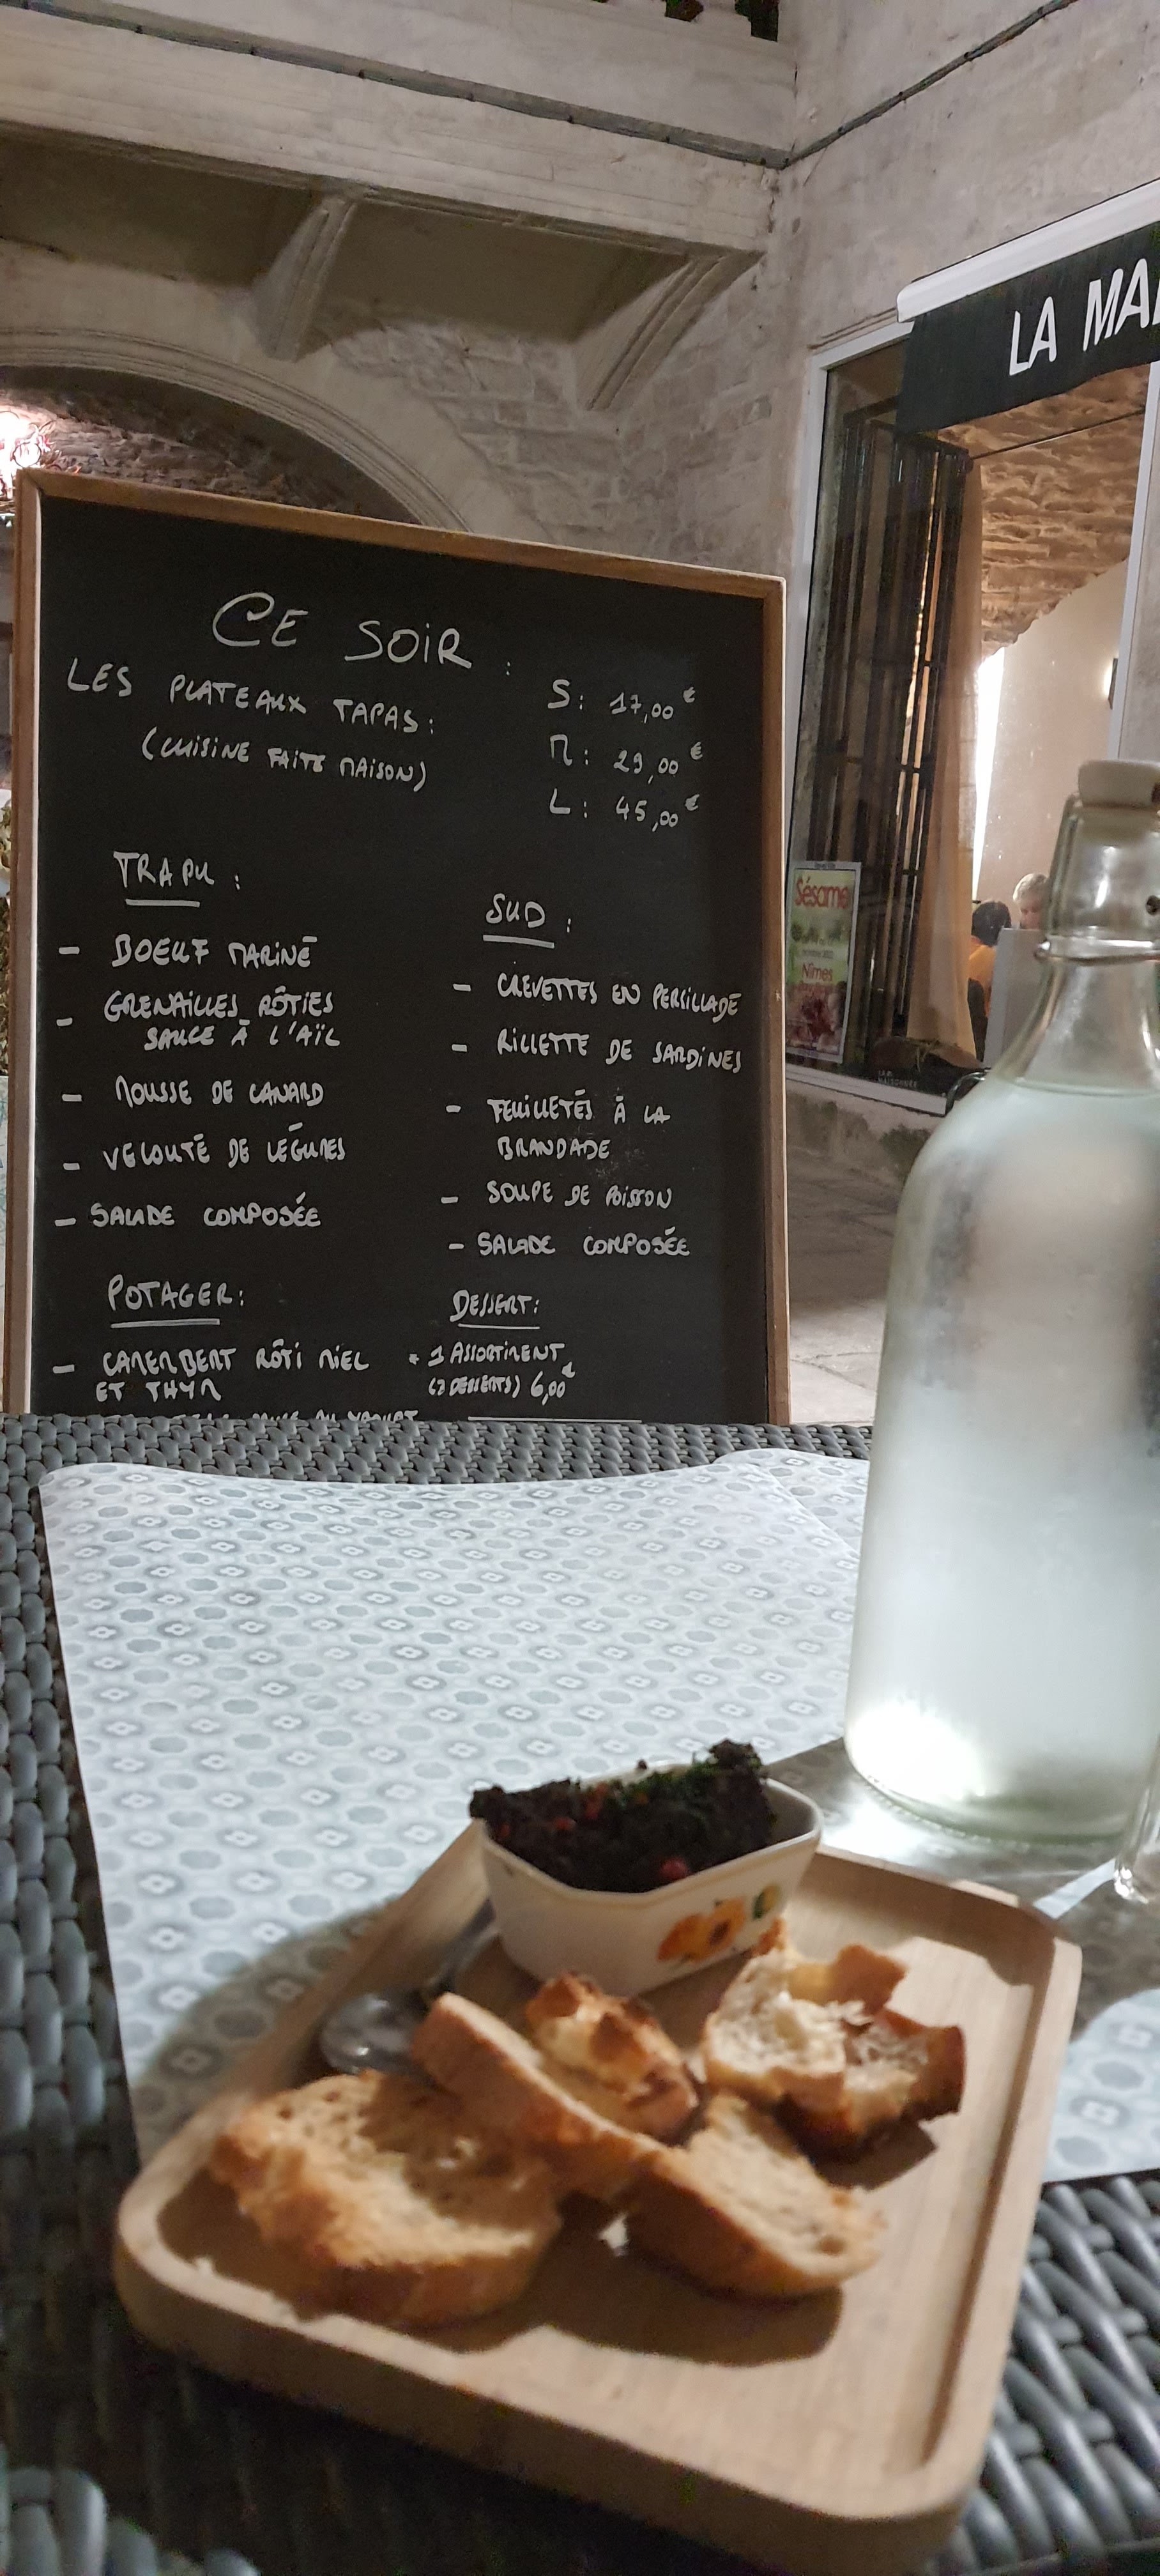 CE SOIR :
LES PLATEAUX TAPAS :
(CUISINE FAITE MAISON)
S : 17,00€
M : 29,00€
L : 45,00€
TRAPU :
- BOEUF MARINÉ
- GRENAILLES RÔTIES
SAUCE À L'AÏL
- MOUSSE DE CANARD
- VELOUTÉ DE LÉGUMES
- SALADE COMPOSÉE
SUD :
- CREVETTES EN PERSILLADE
- RILLETTE DE SARDINES
- FEUILLETÉS À LA
BRANDADE
- SOUPE DE POISSON
- SALADE COMPOSÉE
POTAGER :
- CAMEMBERT RÔTI MIEL
ET THYM
SAUCE AU YAOURT
DESSERT :
* 1 ASSORTIMENT
DESSERTS) 6,00€
LA MA
Sésame
Nîmes